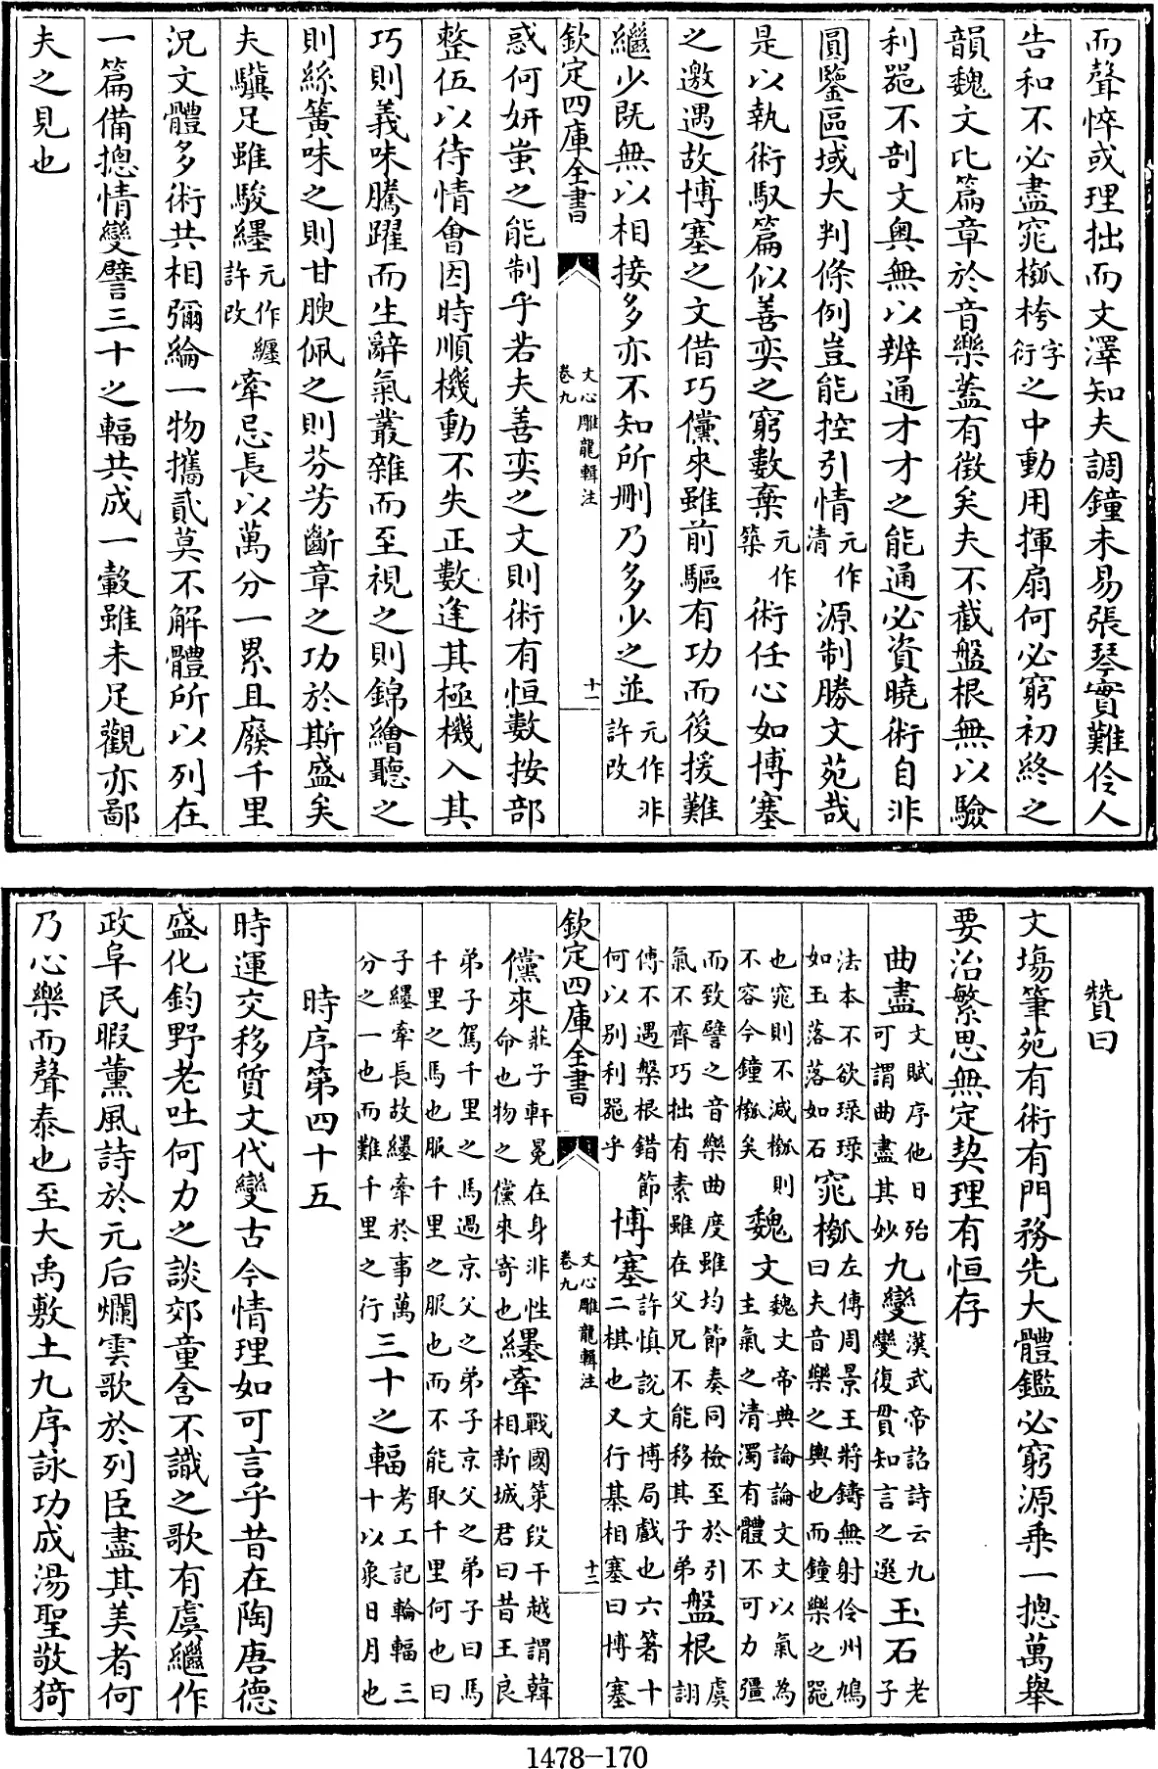 而聲悴或理拙而文澤知夫調鐘未易張琴實難伶人
告和不必盡窕槬桍衍字之中動用揮扇何必窮初終之
韻魏文比篇章於音樂蓋有徵矣夫不截盤根無以驗
利器不剖文奧無以辨通才才之能通必資曉術自非
圓鑒區域大判條例豈能控引情元作清源制勝文苑哉
是以執術馭篇似善奕之窮數棄元作築術任心如博塞
之邀遇故博塞之文借巧儻來雖前驅有功而後援難
繼少既無以相接多亦不知所刪乃多少之並元作非許改
欽定四庫全書
文心雕龍輯注
卷九
十一
惑何妍蚩之能制乎若夫善奕之文則術有恒數按部
整伍以待情會因時順機動不失正數逢其極機入其
巧則義味騰躍而生辭氣叢雜而至視之則錦繪聽之
則絲簧味之則甘腴佩之則芬芳斷章之功於斯盛矣
夫驥足雖駿纆元作纏許改牽忌長以萬分一累且廢千里
況文體多術共相彌綸一物攜貳莫不解體所以列在
一篇備摠情變譬三十之輻共成一轂雖未足觀亦鄙
夫之見也
贊曰
文場筆苑有術有門務先大體鑑必窮源乘一摠萬舉
要治繁思無定契理有恒存
曲盡文賦序他日殆可謂曲盡其妙九變漢武帝詔詩云九變復貫知言之選玉石老子
法本不欲琭琭如玉落落如石窕槬左傳周景王將鑄無射伶州鳩曰夫音樂之輿也而鐘樂之器
也窕則不減槬則不容今鐘槬矣魏文魏文帝典論論文文以氣為主氣之清濁有體不可力彊
而致譬之音樂曲度雖均節奏同檢至於引氣不齊巧拙有素雖在父兄不能移其子弟盤根虞詡
傳不遇槃根錯節何以別利器乎博塞許慎說文博局戲也六箸十二棋也又行棊相塞曰博塞
欽定四庫全書
文心雕龍輯注
卷九
十二
儻來莊子軒冕在身非性命也物之儻來寄也纆牽戰國策段干越謂韓相新城君曰昔王良
弟子駕千里之馬過京父之弟子京父之弟子曰馬千里之馬也服千里之服也而不能取千里何也曰
子纆牽長故纆牽於事萬分之一也而難千里之行三十之輻考工記輪輻三十以象日月也
時序第四十五
時運交移質文代變古今情理如可言乎昔在陶唐德
盛化鈞野老吐何力之談郊童含不識之歌有虞繼作
政阜民暇薰風詩於元后爛雲歌於列臣盡其美者何
乃心樂而聲泰也至大禹敷土九序詠功成湯聖敬猗
1478-170